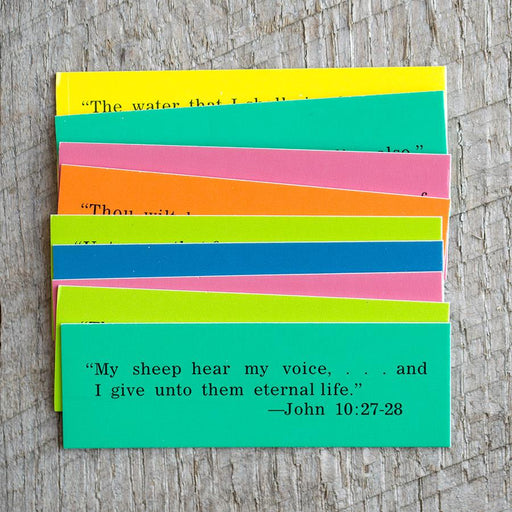 “The water that I shall
also.”
“Thou wilt
“My sheep hear my voice, . . . and
I give unto them eternal life.”
—John 10:27-28